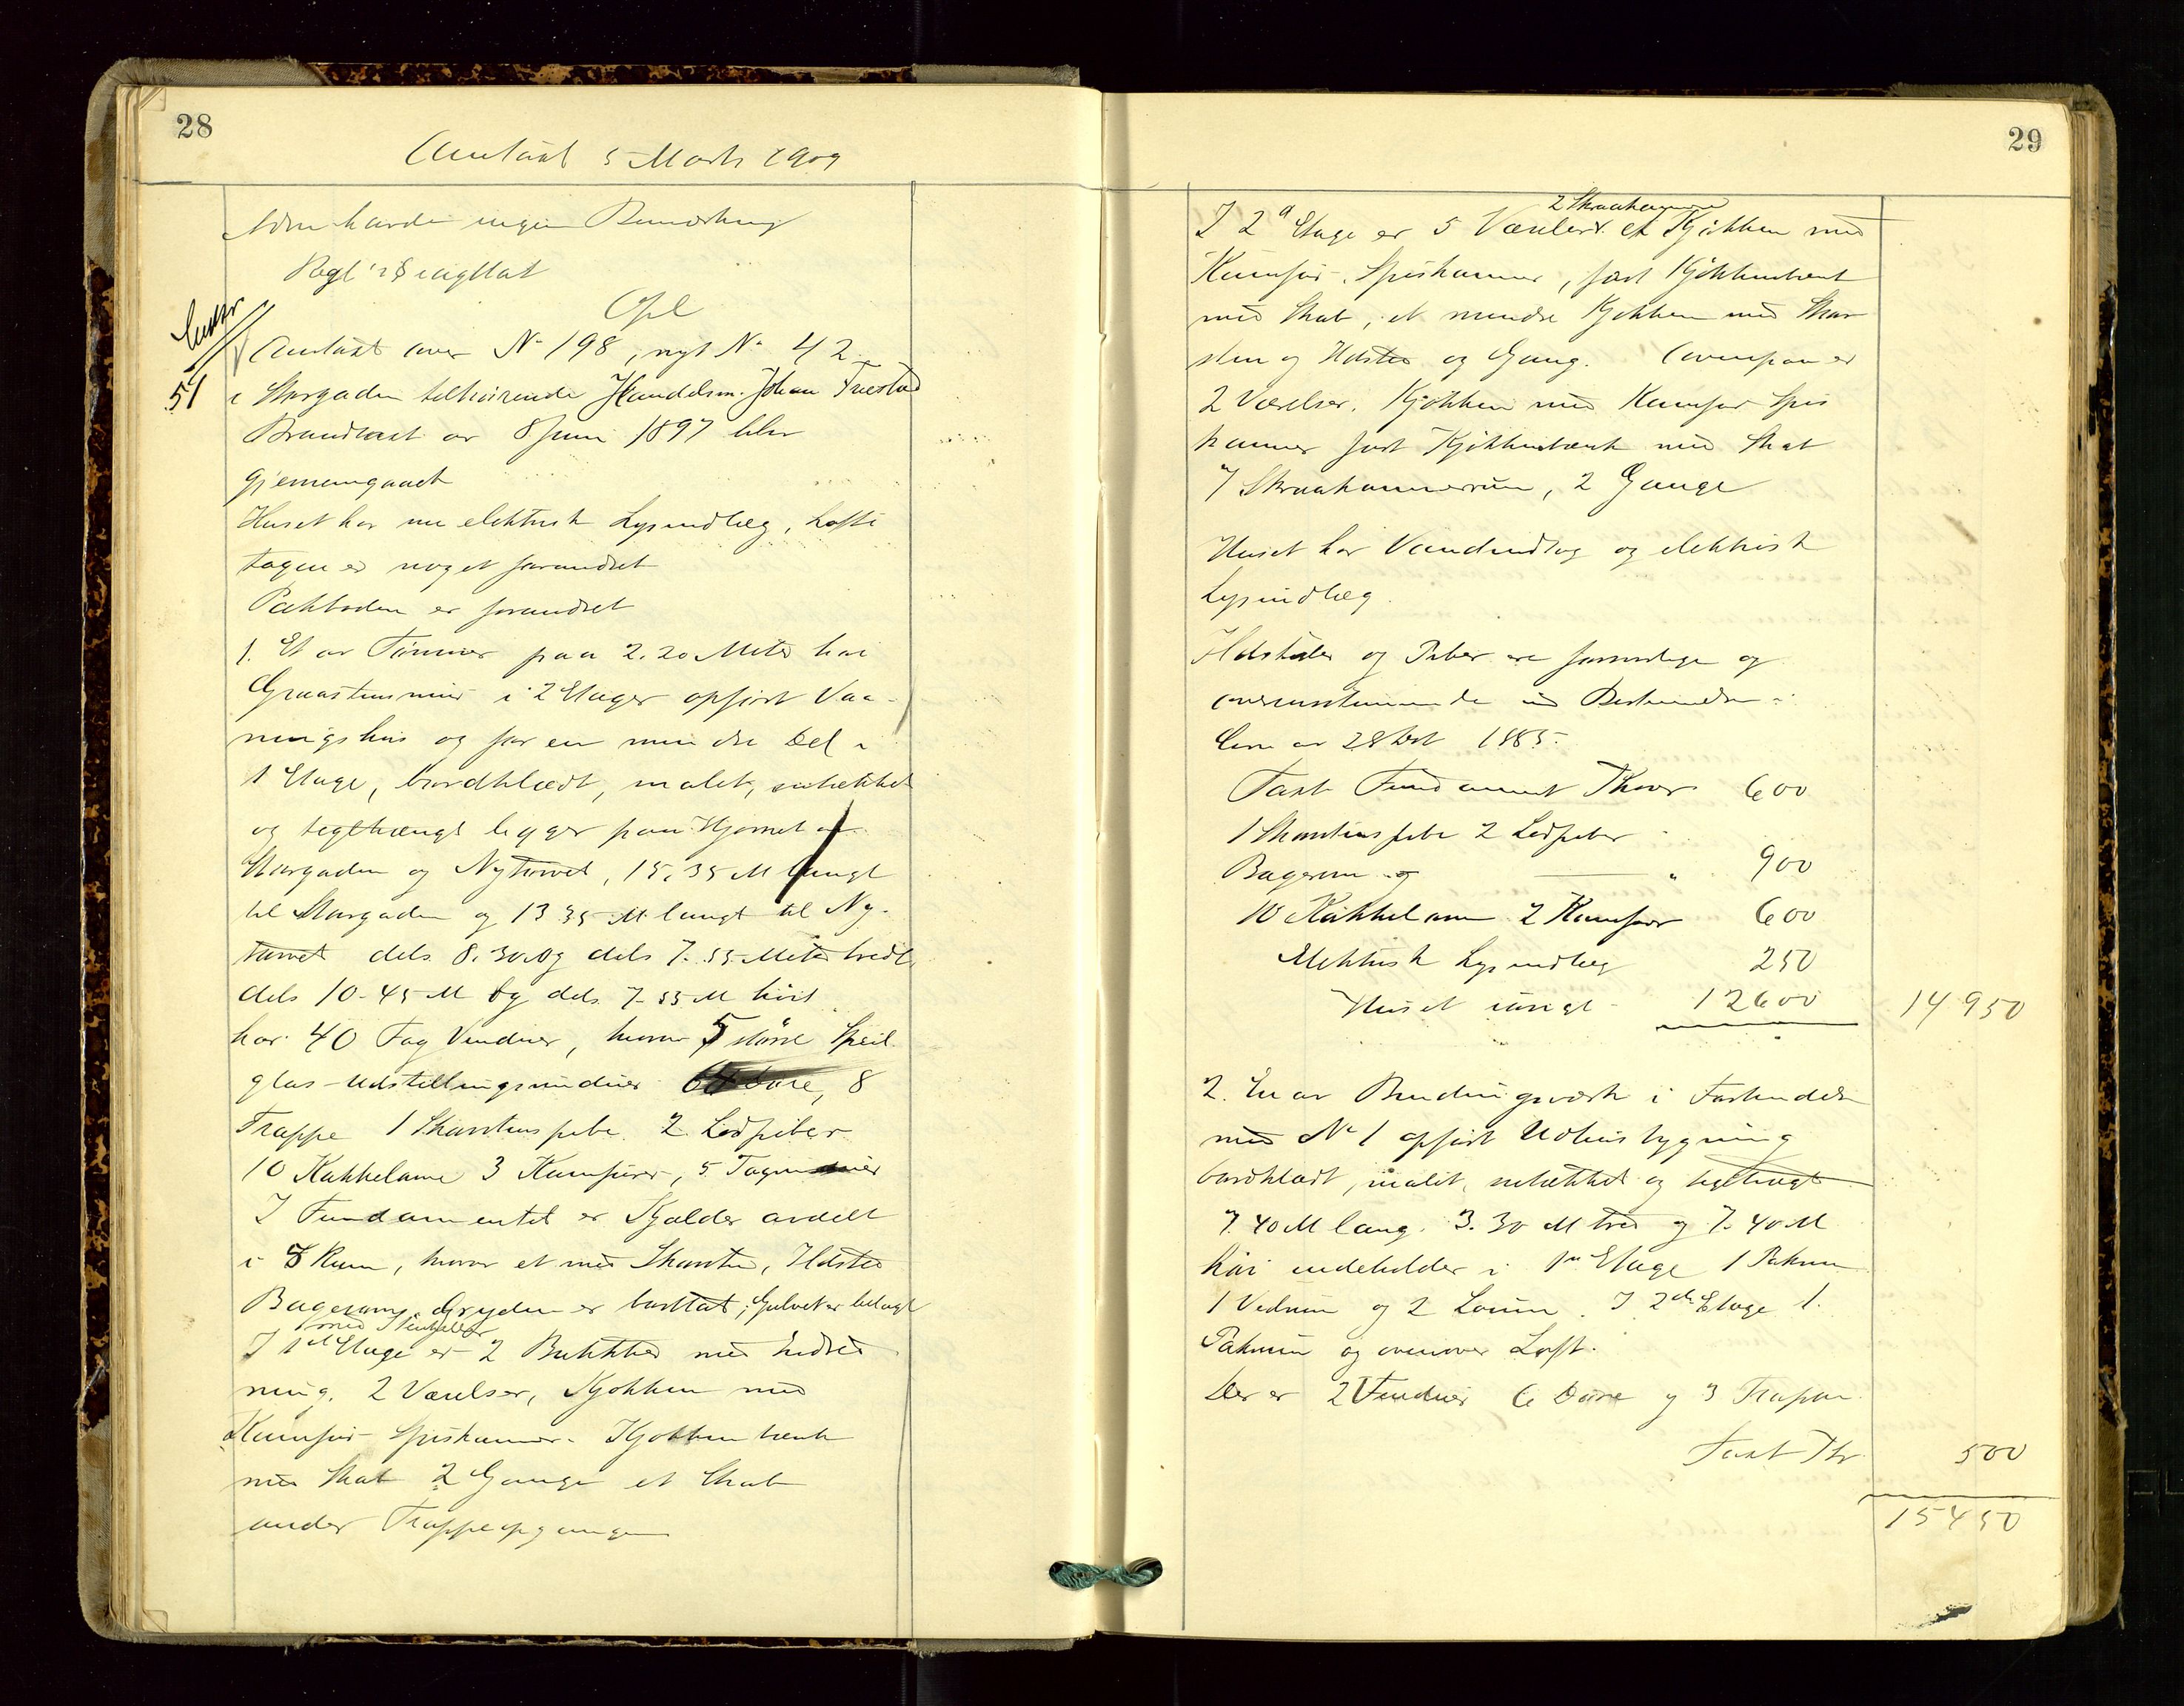 28
Omtaxt 5 Marts 1909
som havde ingen Bemærkning
Regl's vigttat
Opl
51
Omtaxt over No 198, nyt No 42
i Storgaden tilhørende Handelsm. Johan Tuestad
Brandtaxt av 8 Juni 1897 blev
gjennemgaaet
Huset har nu elektrisk Lysindlæg, Lofts
tagen er noget forandret
Pakboden er forandret
1. Et av Tømmer paa 2.20 Meter høi
Graastensmur i 2 Etager opført Vaa-
ningshus og for en mindre Del i
1 Etage, bordklædt, malet,
og teglhængt ligger paa Hjørnet af
Storgaden og Nytorvet, 15,35 M langt
til Storgaden og 13 35 M langt til Ny-
torvet dels 8.30 og dels 7.55 Meter bredt
dels 10-45 M og dels 7-55 M høit
har 40 Fag Vinduer, hvorav 5 større Speil
glas-Udstillingsvinduer Døre, 8
Trappe 1 Skorstenspibe 2 Lødpiber
10 Kakkelovne 3 Komfurer, 5 Tagvinduer
I Fundamentet er Kjælder avdelt
i 8 Rum, hvorav et med Skorsten, Ildsted
Bagerovn, Gryden er borttat, Gulvet er belagt
med Stenheller
I 1ste Etage er 2 Butikker med Indred
ning, 2 Værelser, Kjøkken med
Komfur Spiskammer. Kjøkkenbænk
med Skab 2 Gange et Skab
under Trappeopgangen
29
2 Skraakammere
I 2den Etage er 5 Værelser et Kjøkken med
Komfur, Spiskammer, fast Kjøkkenbænk
med Skab, et mindre Kjøkken med Skor
sten og Ildsted og Gang. Ovenpaa er
2 Værelser, Kjøkken med Komfur Spis
kammer fast Kjøkkenbænk med Skab
7 Skraakammerrum, 2 Gange
Huset har Vandindlæg og elektrisk
Lysindlæg.
Ildsteder og Piber ere forsvarlige og
overensstemmende m Bestemmelser i
Lov av 28 Oct 1885.
Taxt Fundament Kroner 600
1 Skorstenspibe 2 Lødpiber
Bagerovn og " 900
10 Kakkelovne 2 Komfurer 600
Elektrisk Lysindlæg 250
Huset iøvrigt 12600 14950
2. En av Bindingsværk i Forbindelse
med No 1 opført Udhusbygning
bordklædt, malet, og teglhængt
7.40 M lang. 3.30 M bred og 7.40 M
høi indeholder i 1ste Etage 1 Pakrum
1 Vedrum og 2 Lorum. I 2den Etage 1
Pakrum og ovenover Loft.
Der er 2 Vinduer 6 Døre og 3 Trapper
Taxt Kr 500
15450